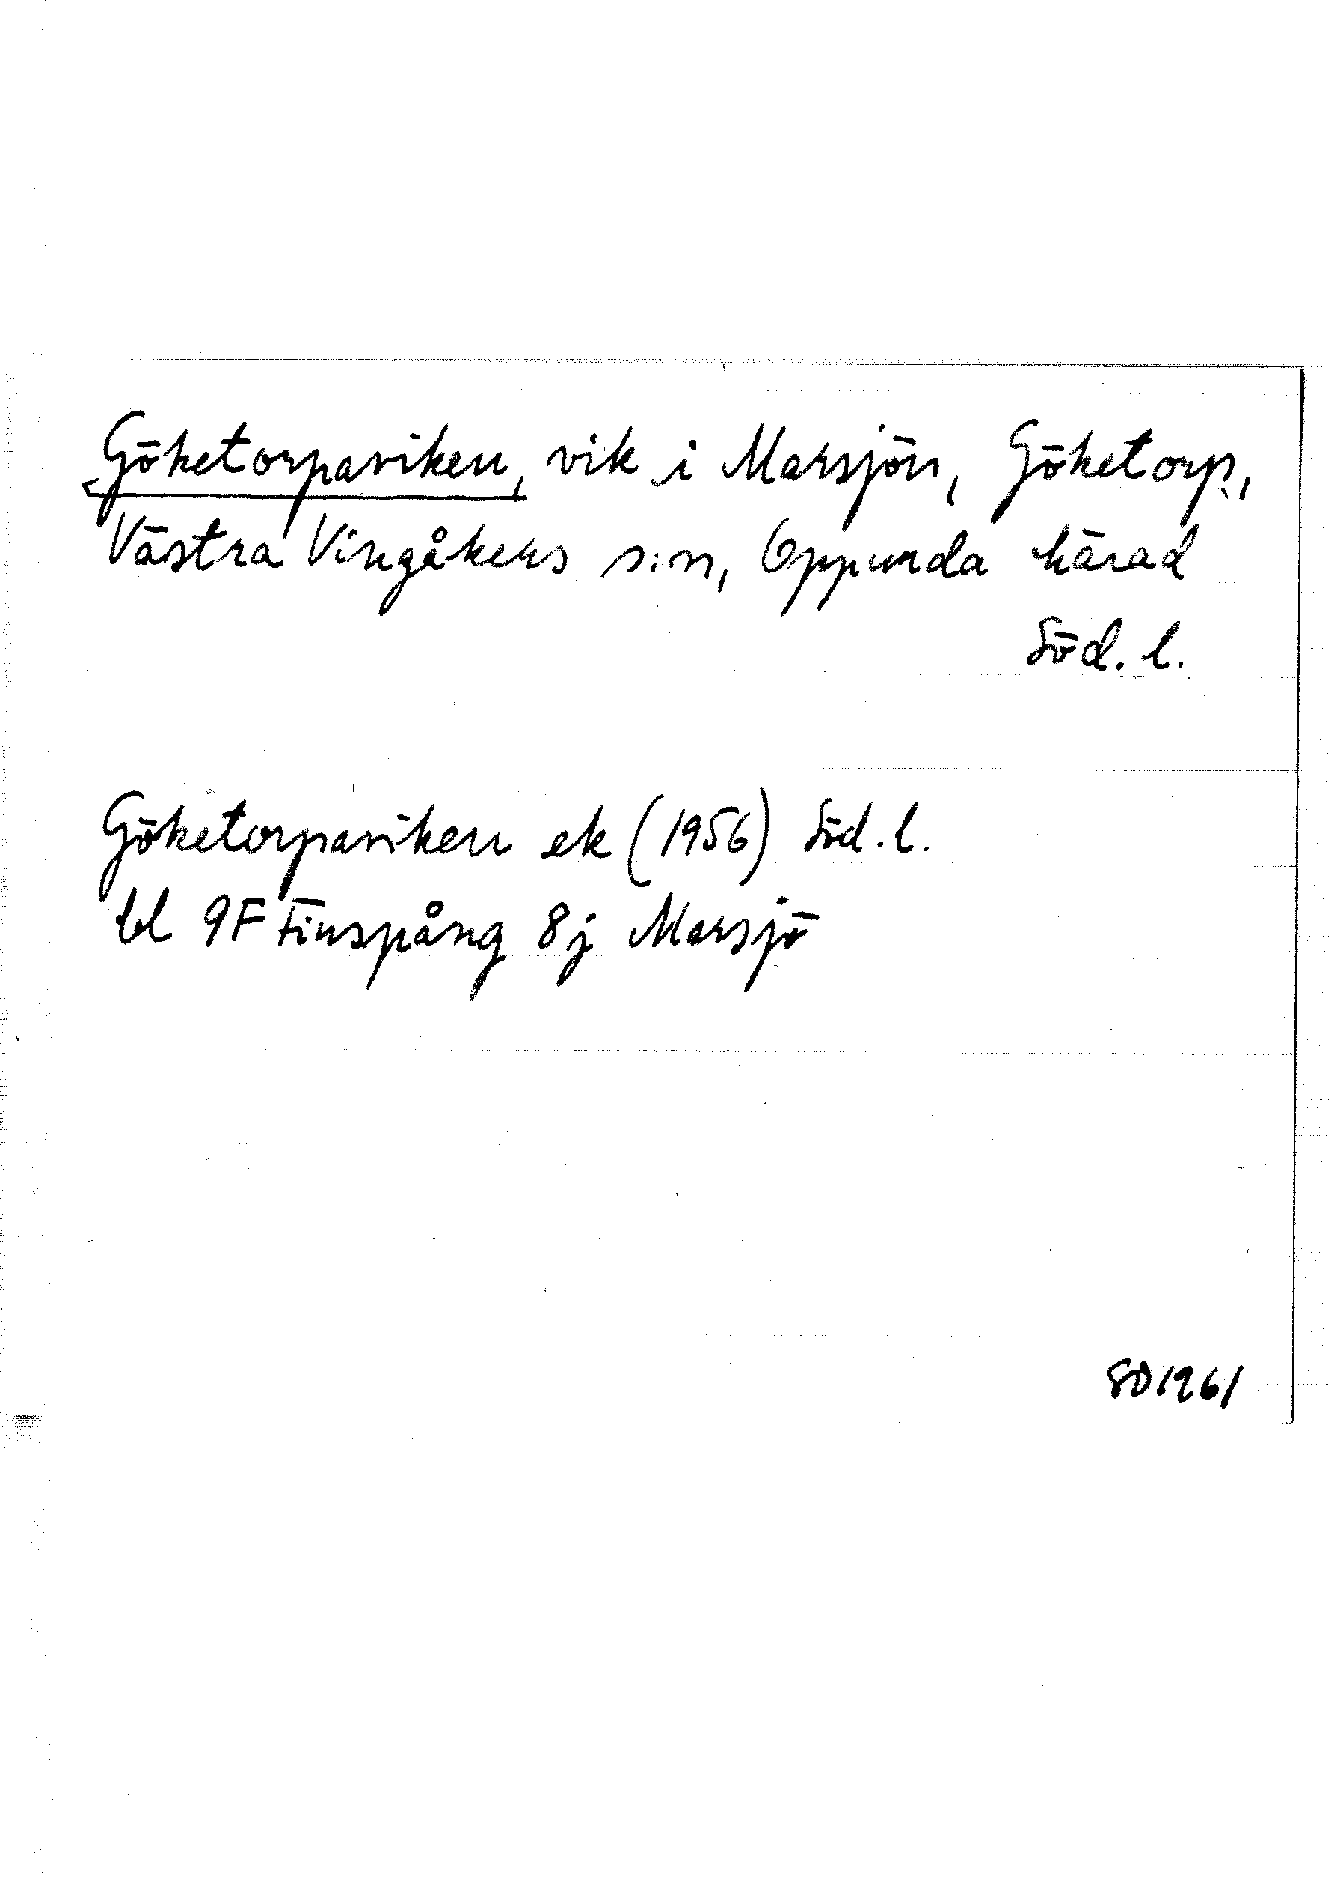 Göketorpaviken, vik i Marsjön, Göketorp,
Västra Vingåkers s:n, Oppunda härad
Söd. l.
Göketorpaviken ek (1956) Söd. l.
bl 9F Finspång 8j Marsjö
SO 1961